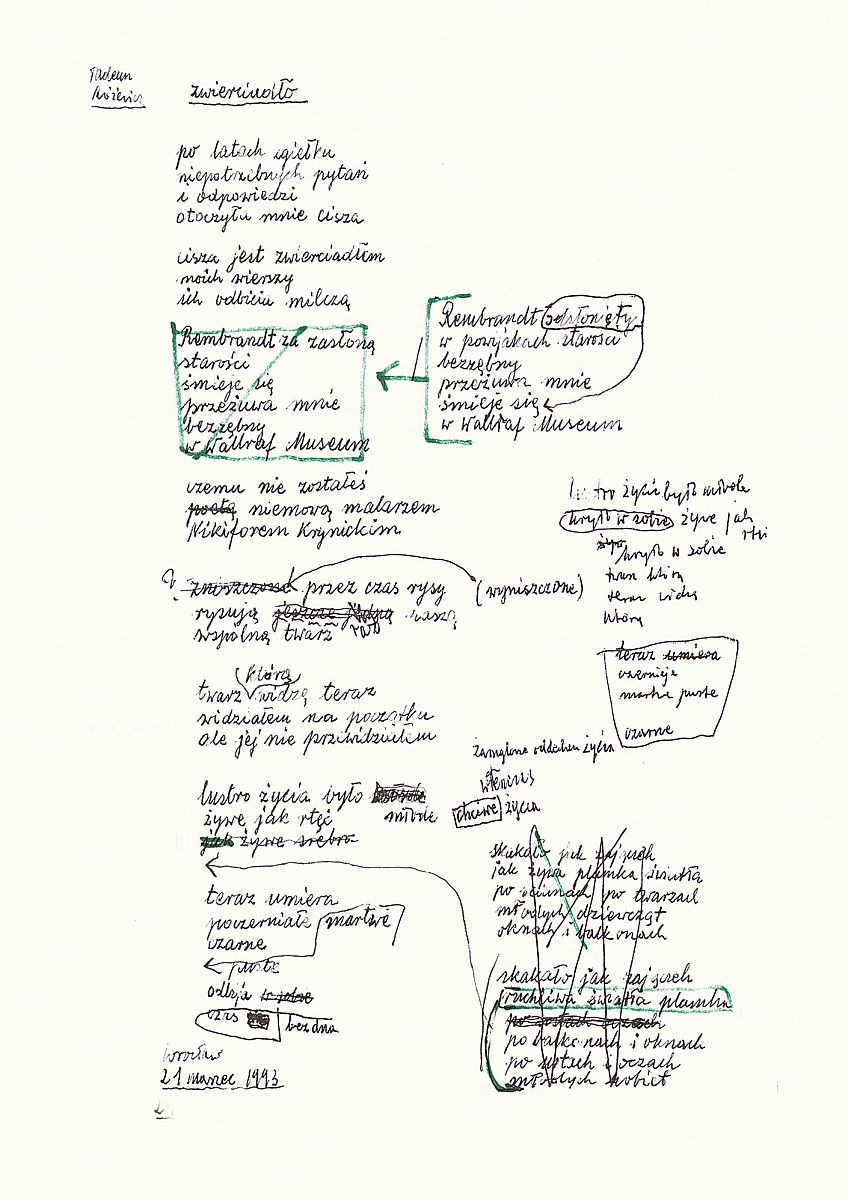 Tadeusz
Różewicz
zwierciadło
po latach zgiełku
niepotrzebnych pytań
i odpowiedzi
otoczyła mnie cisza
cisza jest zwierciadłem
moich wierszy
ich odbicia milczą
Rembrandt za zasłoną
starości
śmieje się
przeżuwa mnie
bezzębny
w Wallraf Museum
Rembrandt odsłonięty
w powijakach starości
bezzębny
przeżuwa mnie
śmieje się
w Wallraf Museum
czemu nie zostałeś
poetą niemową malarzem
Nikiforem Krynickim
zniszczone przez czas rysy (wyniszczone)
rysują jeszcze jedną naszą
wspólną twarz
którą
twarz widzę teraz
widziałem na początku
ale jej nie przewidziałem
lustro życia było
żywe jak rtęć młode
jak żywe srebro
teraz umiera
poczerniałe martwe
czarne
puste
odbija
czas bez dna
Wrocław
21 marzec 1993
lustro życia było młode
kryło w sobie żywe jak
rtęć
kryło w sobie
twarz którą
teraz widzę
którą
teraz umiera
czernieje
martwe puste
czarne
zamglone oddechem życia
chciwe życia
skakało jak zajączek
jak żywa plamka światła
po ścianach po twarzach
młodych dziewcząt
oknach i balkonach
skakało jak zajączek
ruchliwa światła plamka
po balkonach i oknach
po ustach i oczach
młodych kobiet